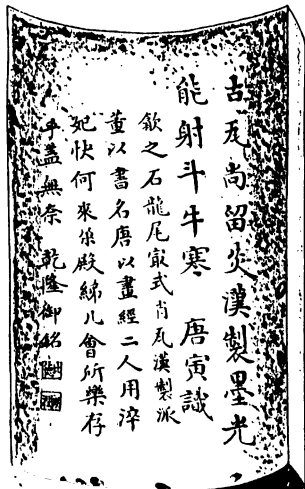 古瓦尚留炎漢製墨光
能射斗牛寒 唐寅識
歙之石龍尾㝡式肖瓦漢製派
董以書名唐以畫經二人用淬
妃快何來殿綈几會所樂存
乎盖無奈 乾隆御銘